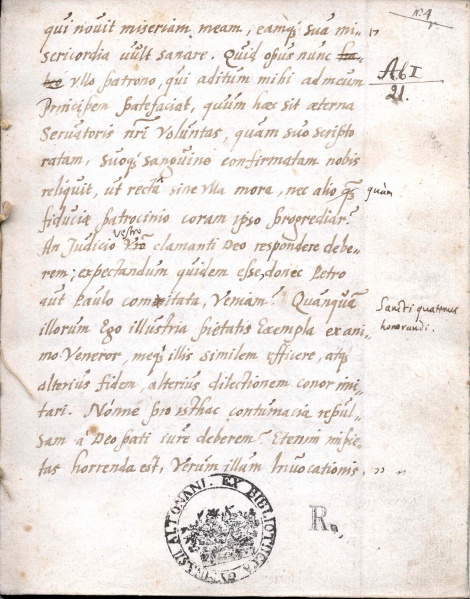 N. 4
qui novit miseriam meam, eamq; sua mi-
sericordia vult sanare. Quid opus nunc ha-
beo vllo patrono, qui aditum mihi ad meum
Principem patefaciat, quum hæc sit æterna
Servatoris nr̃i Voluntas, quam suo scripto
ratam, suoq; sanguine confirmatam nobis
reliquit, ut recta sine vlla mora, nec alio
quàm
fiduciæ patrocinio coram ipso
An Judicio vestro clamanti Deo respondere debe-
rem; expectandum quidem esse, donec Petro
aut Paulo comitata, Veniam? Quanquã
illorum Ego illustria pietatis Exempla ex ani-
mo Veneror, meq; illis similem efficere, atq;
alterius fidem, alterius dilectionem conor imi-
tari. Nónne pro isthac contumacia repul-
sam à Deo pati iure deberem? Etenim impie-
tas horrenda est, Verum illum Invocationis,
Ab I
21.
Sancti quatenus
honorandi.
EX BIBLIOTHECA
ALTHANI
R.